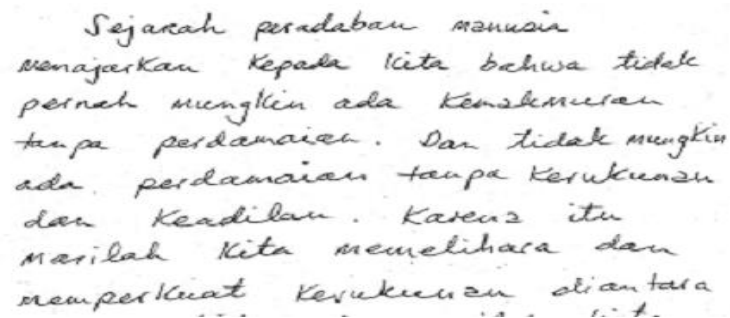 Sejarah peradaban manusia
menajarkan kepada kita bahwa tidak
pernah mungkin ada kemakmuran
tanpa perdamaian. Dan tidak mungkin
ada perdamaian tanpa kerukunan
dan keadilan. Karena itu
marilah kita memelihara dan
memperkuat kerukunan diantara